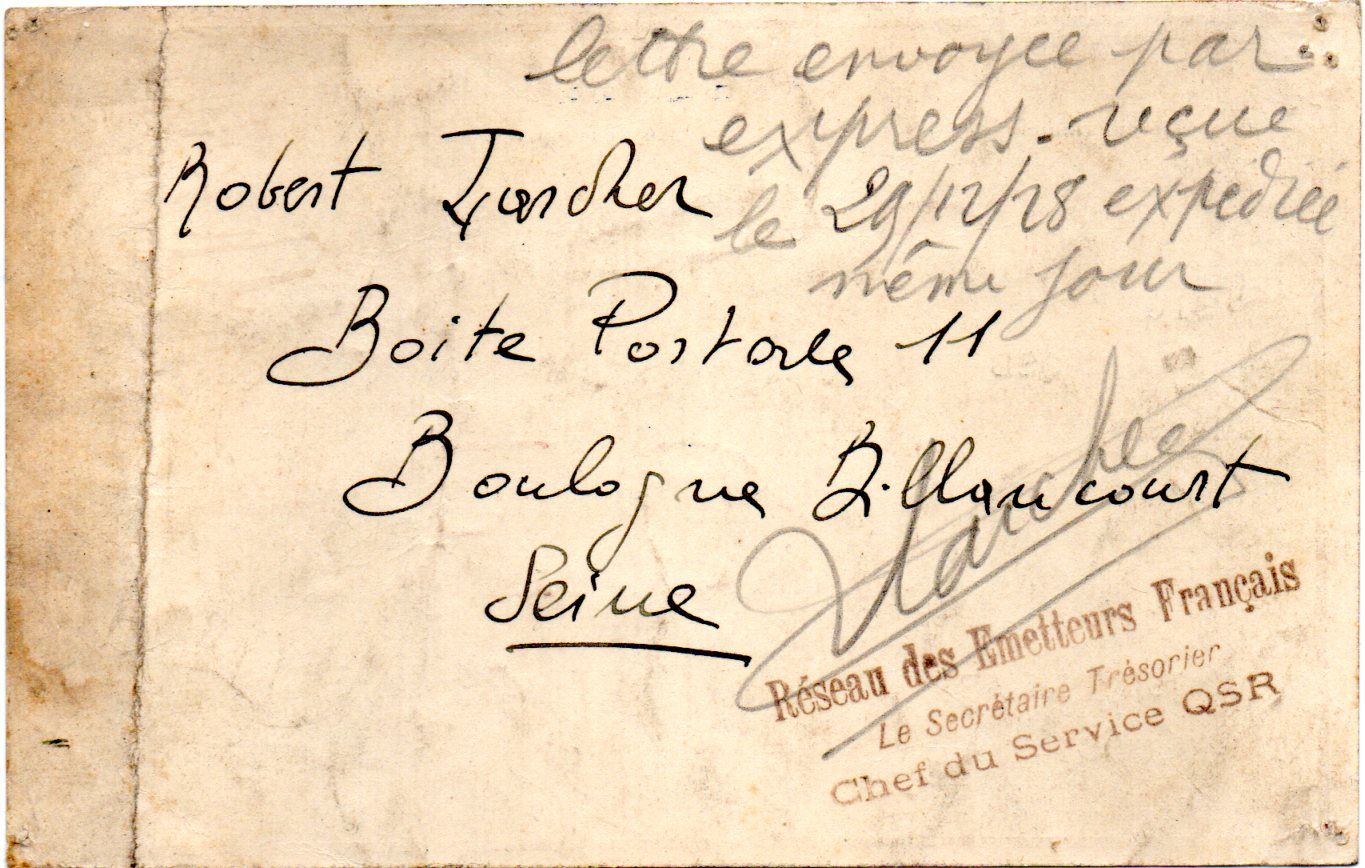 lettre envoyée par
express. reçue
le 29/12/28 expédiée
même jour
Robert Larcher
Boite Postale 11
Boulogne Billancourt
Seine
Larcher
Réseau des Emetteurs Français
Le Secrétaire Trésorier
Chef du Service QSR